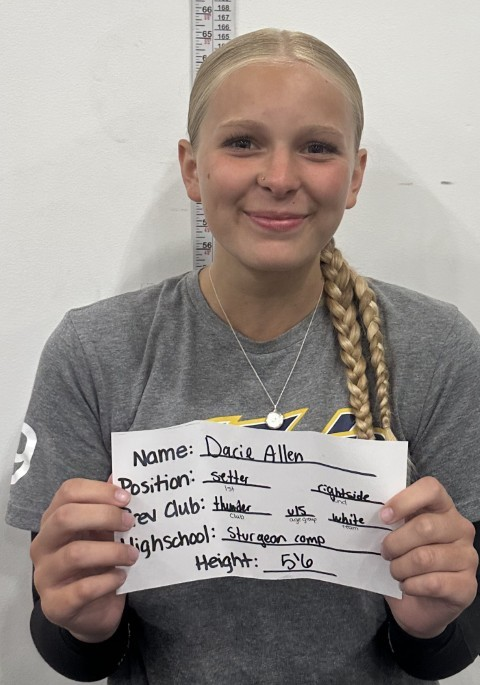 Name: Dacie Allen
Position: setter rightside
1st 2nd
Prev Club: thunder u15 white
club age group team
Highschool: Sturgeon comp
Height: 5'6
66
65
56
168
167
166
165